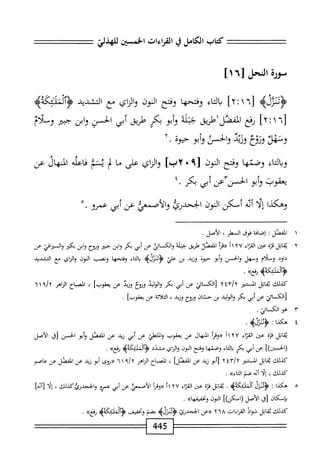 كتاب الكامل في القراءات الخمسين للهذليّ
سورة النحل [١٦]
﴿تَنَزَّلُ﴾ [٢:١٦] بالتاء وفتحها وفتح النون والزاي مع التشديد ﴿ٱلْمَلَٰٓئِكَةُ﴾
[٢:١٦] رفع المفضّل ١ طريق جَبَلَةَ وأبو بكرٍ طريق أبي الحسن وابن جبير وسلّامٌ
وسَهْلٌ ورَوْحٌ وزيْدٌ والحسنُ وأبو حيوة .٢
وبالتاء وضمّها وفتح النون [٢٠٩ب] والزاي على ما لم يُسَمَّ فاعله المنهالُ عن
يعقوبَ وأبو الحسن ٣ عن أبي بكر .٤
وهكذا إلّا أنّه أسكن النون الجحدريُّ والأصمعيُّ عن أبي عمرو .٥
١ المفضّل : إضافة فوق السطر ، الأصل .
٢ يُقابَل قرّة عين القرّاء ١٢٧أ «وقرأ المفضّل طريق جَبَلَة والكسائيّ عن أبي بكر وابن جبير وروح وابن بكير والسيرافيّ عن
داود وسلّام وسهل والحسن وأبو حيوة وزيد بن عليّ ﴿تَنَزَّلُ﴾ بالتاء وفتحها ونصب النون والزاي مع التشديد
﴿ٱلْمَلَٰٓئِكَةُ﴾ رفع» .
كذلك يُقابَل المستنير ٢٤٣/٢ [الكسائيّ عن أبي بكر والوليدُ وروحٌ وزيدٌ عن يعقوب] ، المصباح الزاهر ٦١٩/٢
[الكسائيّ عن أبي بكر والوليد بن حسّان وروح وزيد ، الثلاثة عن يعقوب] .
٣ هو الكسائيّ .
٤ هكذا : ﴿تُنَزَّلُ﴾ .
يُقابَل قرّة عين القرّاء ١٢٧أ «وقرأ المنهال عن يعقوب والملطيّ عن أبي زيد عن المفضّل وأبو الحسن [في الأصل
(الحسين)] عن أبي بكر بالتاء وضمّها وفتح النون والزاي مشدّد ﴿ٱلْمَلَٰٓئِكَةُ﴾ رفع» .
كذلك يُقابَل المستنير ٢٤٣/٢ [أبو زيد عن المفضّل] ، المصباح الزاهر ٦١٩/٢ «روى أبو زيد عن المفضّل عن عاصم
كذلك ، إلّا أنّه ضمّ التاء» .
٥ هكذا : ﴿تُنْزَلُ ٱلْمَلَٰٓئِكَةُ﴾ . يُقابَل قرّة عين القرّاء ١٢٧أ «وقرأ الأصمعيّ عن أبي عمرو والجحدريّ كذلك ، إلّا [أنّه]
بإسكان [في الأصل (اسكن)] النون وتخفيفها» .
كذلك يُقابَل شواذّ القراءات ٢٦٨ «عن الجحدريّ ﴿تُنْزَلُ﴾ بضمّ وتخفيف ﴿ٱلْمَلَٰٓئِكَةُ﴾ رفع» .
445